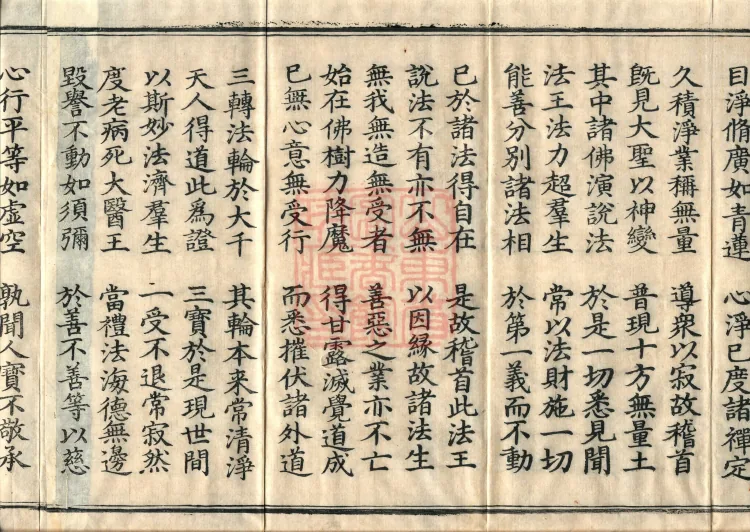 目淨脩廣如青蓮　心淨已度諸禪定
久積淨業稱無量　導衆以寂故稽首
旣見大聖以神變　普現十方無量土
其中諸佛演說法　於是一切悉見聞
法王法力超羣生　常以法財施一切
能善分別諸法相　於第一義而不動
已於諸法得自在　是故稽首此法王
說法不有亦不無　以因緣故諸法生
無我無造無受者　善惡之業亦不亡
始在佛樹力降魔　得甘露滅覺道成
已無心意無受行　而悉摧伏諸外道
三轉法輪於大千　其輪本来常清淨
天人得道此爲證　三寶於是現世間
以斯妙法濟羣生　一受不退常寂然
度老病死大醫王　當禮法海德無邊
毀譽不動如須彌　於善不善等以慈
心行平等如虛空　孰聞人寶不敬承